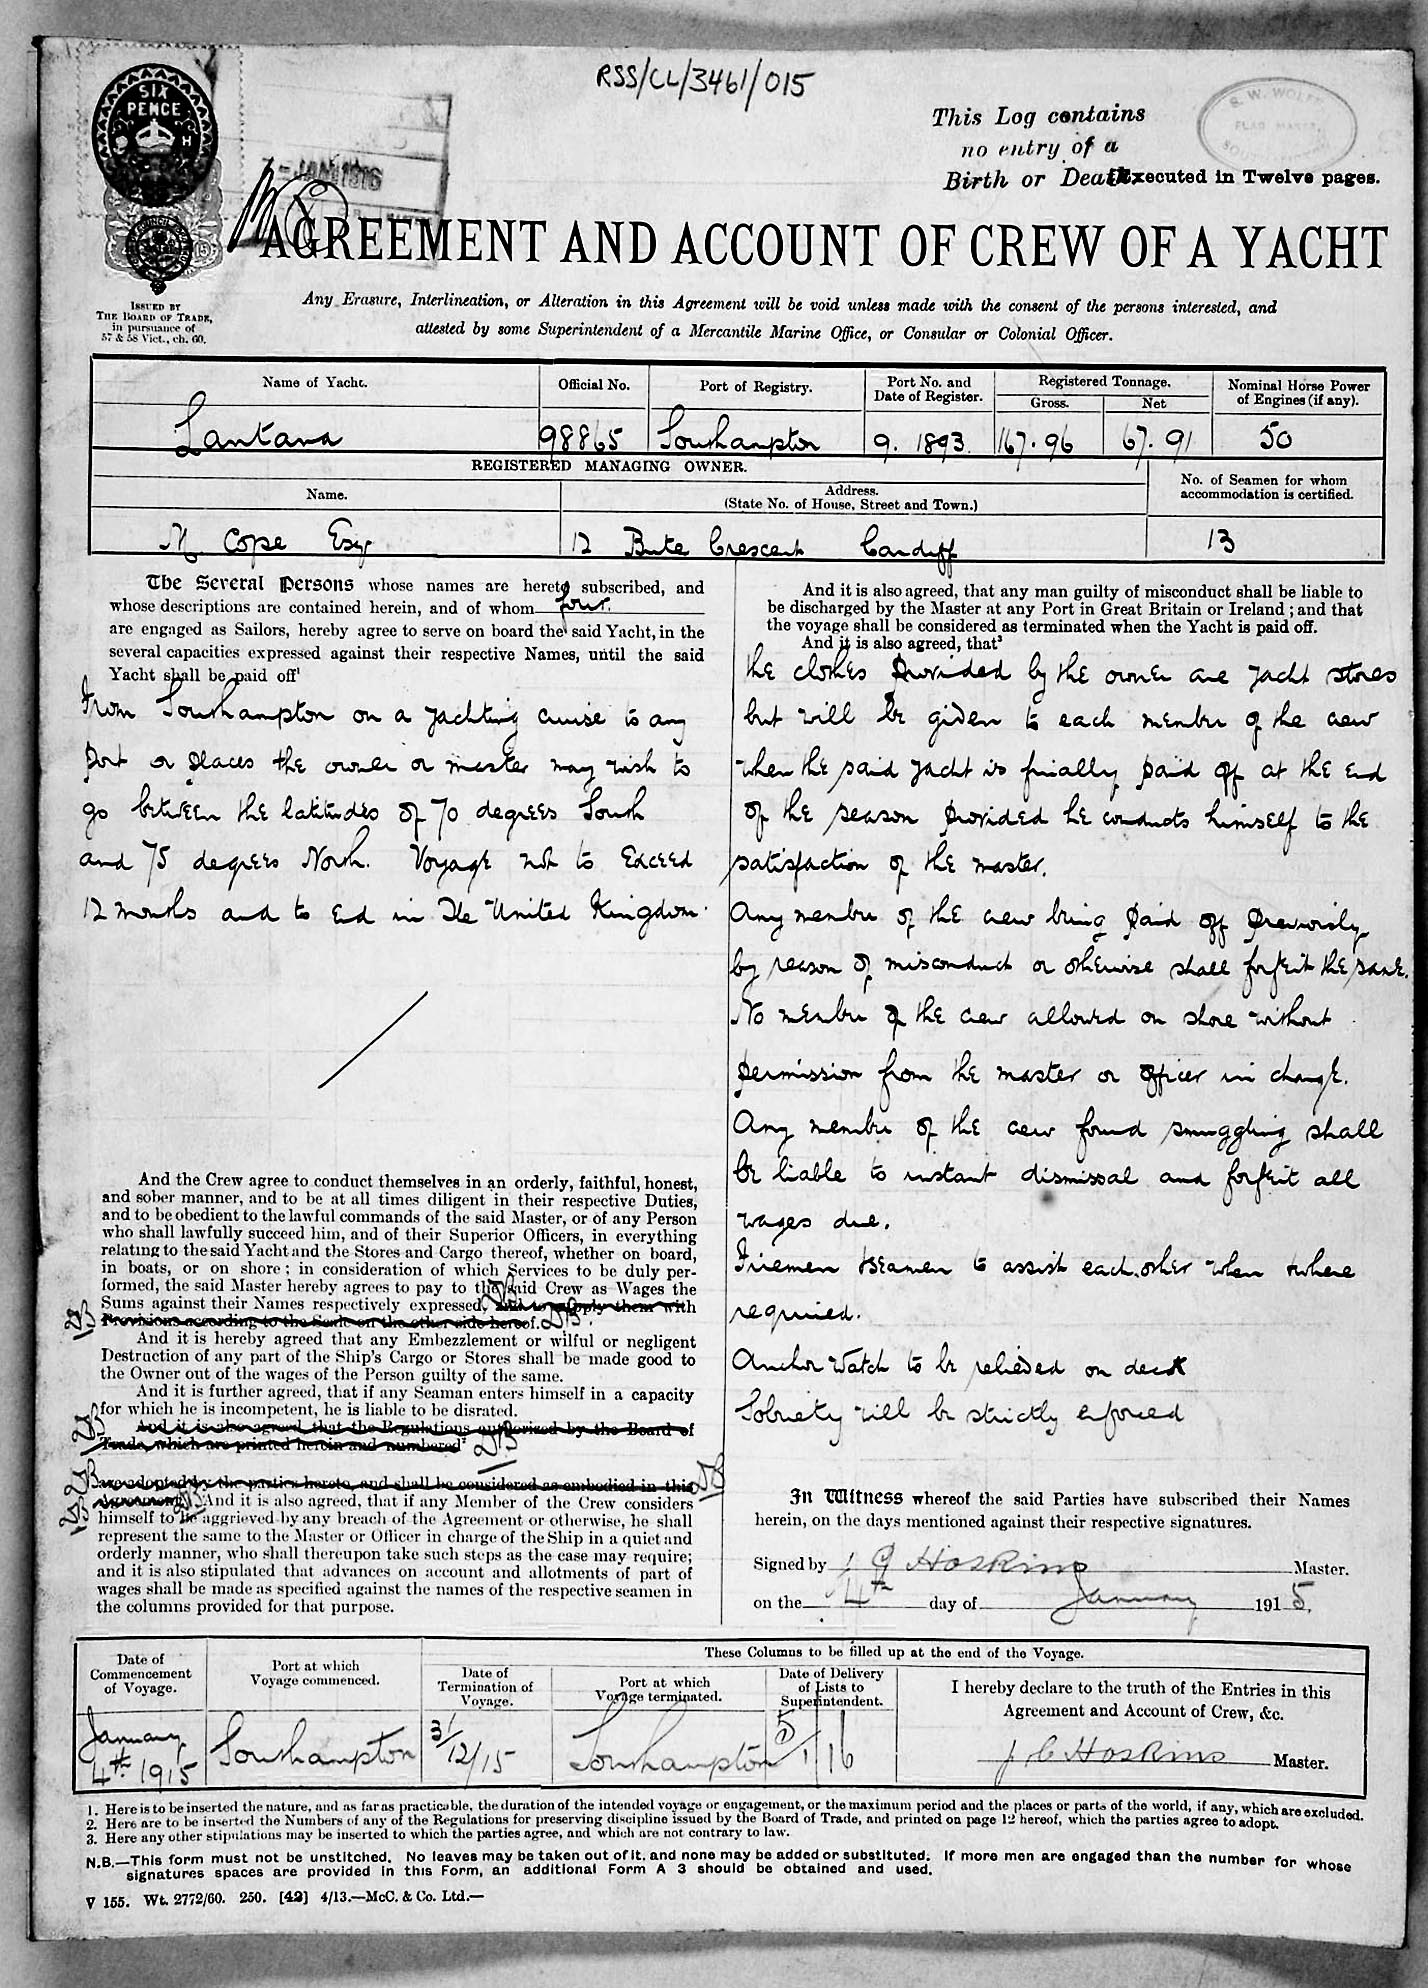 RSS/CL/3461/015
SIX
PENCE
S. W. WOLFF
This Log contains
no entry of a
Birth or Death
Executed in Twelve pages.
JAN 1916
AGREEMENT AND ACCOUNT OF CREW OF A YACHT
ISSUED BY
THE BOARD OF TRADE,
in pursuance of
57 & 58 Vict., ch. 60.
Any Erasure, Interlineation, or Alteration in this Agreement will be void unless made with the consent of the persons interested, and
attested by some Superintendent of a Mercantile Marine Office, or Consular or Colonial Officer.
Name of Yacht. Official No. Port of Registry. Port No. and Date of Register. Registered Tonnage. Gross. Net Nominal Horse Power of Engines (if any).
Lantana 98865 Southampton 9. 1893. 167.96 67.91 50
REGISTERED MANAGING OWNER.
Name. Address. (State No. of House, Street and Town.) No. of Seamen for whom accommodation is certified.
M. Cope Esq 12 Bute Crescent Cardiff 13
The Several Persons whose names are hereto subscribed, and
whose descriptions are contained herein, and of whom four.
are engaged as Sailors, hereby agree to serve on board the said Yacht, in the
several capacities expressed against their respective Names, until the said
Yacht shall be paid off¹
From Southampton on a yachting cruise to any
port or places the owner or master may wish to
go between the latitudes of 70 degrees South
and 75 degrees North. Voyage not to exceed
12 months and to end in The United Kingdom.
And the Crew agree to conduct themselves in an orderly, faithful, honest,
and sober manner, and to be at all times diligent in their respective Duties,
and to be obedient to the lawful commands of the said Master, or of any Person
who shall lawfully succeed him, and of their Superior Officers, in everything
relating to the said Yacht and the Stores and Cargo thereof, whether on board,
in boats, or on shore; in consideration of which Services to be duly per-
formed, the said Master hereby agrees to pay to the said Crew as Wages the
Sums against their Names respectively expressed, and to supply them with
Provisions according to the Scale on the other side hereof.
And it is hereby agreed that any Embezzlement or wilful or negligent
Destruction of any part of the Ship's Cargo or Stores shall be made good to
the Owner out of the wages of the Person guilty of the same.
And it is further agreed, that if any Seaman enters himself in a capacity
for which he is incompetent, he is liable to be disrated.
And it is also agreed, that the Regulations authorized by the Board of
Trade, which are printed herein and numbered²
are adopted by the parties hereto, and shall be considered as embodied in this
Agreement. And it is also agreed, that if any Member of the Crew considers
himself to be aggrieved by any breach of the Agreement or otherwise, he shall
represent the same to the Master or Officer in charge of the Ship in a quiet and
orderly manner, who shall thereupon take such steps as the case may require;
and it is also stipulated that advances on account and allotments of part of
wages shall be made as specified against the names of the respective seamen in
the columns provided for that purpose.
And it is also agreed, that any man guilty of misconduct shall be liable to
be discharged by the Master at any Port in Great Britain or Ireland; and that
the voyage shall be considered as terminated when the Yacht is paid off.
And it is also agreed, that³
the clothes provided by the owner are yacht stores
but will be given to each member of the crew
when the said yacht is finally paid off at the end
of the season provided he conducts himself to the
satisfaction of the master.
Any member of the crew being paid off previously
by reason of misconduct or otherwise shall forfeit the same.
No member of the crew allowed on shore without
permission from the master or officer in charge.
Any member of the crew found smuggling shall
be liable to instant dismissal and forfeit all
wages due.
Firemen & seamen to assist each other when & where
required.
Anchor Watch to be relieved on deck
Sobriety will be strictly enforced
In Witness whereof the said Parties have subscribed their Names
herein, on the days mentioned against their respective signatures.
Signed by J C Hoskins Master.
on the 4th day of January 1915.
Date of Commencement of Voyage. Port at which Voyage commenced. These Columns to be filled up at the end of the Voyage.
Date of Termination of Voyage. Port at which Voyage terminated. Date of Delivery of Lists to Superintendent. I hereby declare to the truth of the Entries in this Agreement and Account of Crew, &c.
January 4th 1915 Southampton 31/12/15 Southampton 5/1/16 J C Hoskins Master.
1. Here is to be inserted the nature, and as far as practicable, the duration of the intended voyage or engagement, or the maximum period and the places or parts of the world, if any, which are excluded.
2. Here are to be inserted the Numbers of any of the Regulations for preserving discipline issued by the Board of Trade, and printed on page 12 hereof, which the parties agree to adopt.
3. Here any other stipulations may be inserted to which the parties agree, and which are not contrary to law.
N.B.—This form must not be unstitched. No leaves may be taken out of it, and none may be added or substituted. If more men are engaged than the number for whose
signatures spaces are provided in this Form, an additional Form A 3 should be obtained and used.
V 155. Wt. 2772/60. 250. [42] 4/13.—McC. & Co. Ltd.—